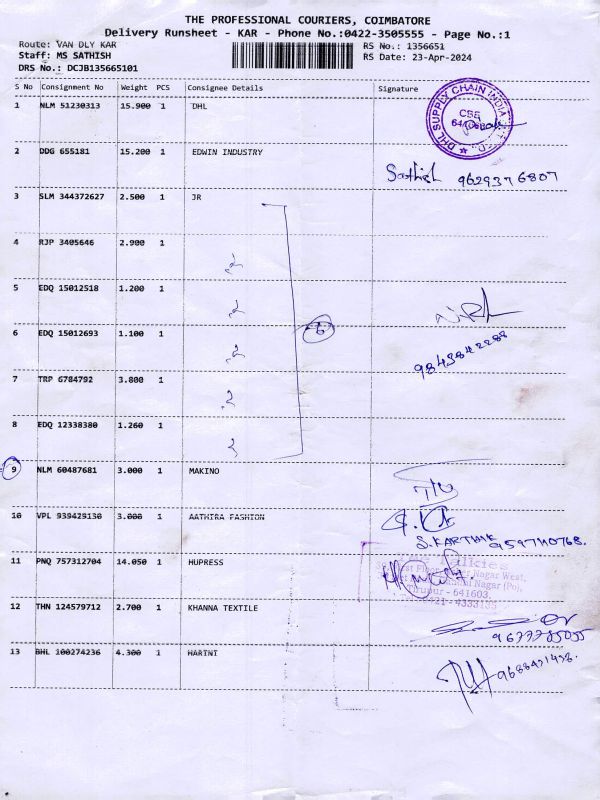 THE PROFESSIONAL COURIERS, COIMBATORE
Delivery Runsheet - KAR - Phone No.:0422-3505555 - Page No.:1
Route: VAN DLY KAR
RS No.: 1356651
Staff: MS SATHISH
RS Date: 23-Apr-2024
DRS No.: DCJB135665101
S No Consignment No Weight PCS Consignee Details Signature
1 NLM 51230313 15.900 1 DHL
DHL SUPPLY CHAIN INDIA
CBE
2 DDG 655181 15.200 1 EDWIN INDUSTRY
Sathish 9629376807
3 SLM 344372627 2.500 1 JR
4 RJP 3405646 2.900 1
5 EDQ 15012518 1.200 1
6 EDQ 15012693 1.100 1
6
9843842288
7 TRP 6784792 3.800 1
8 EDQ 12338380 1.260 1
9 NLM 60487681 3.000 1 MAKINO
10 VPL 939429130 3.000 1 AATHIRA FASHION
S.KARTHIK 9597110768.
11 PNQ 757312704 14.050 1 HUPRESS
Nagar West,
Nagar (Po),
Tirupur - 641603.
0421 - 4333135
12 THN 124579712 2.700 1 KHANNA TEXTILE
9677785055
13 BHL 100274236 4.300 1 HARINI